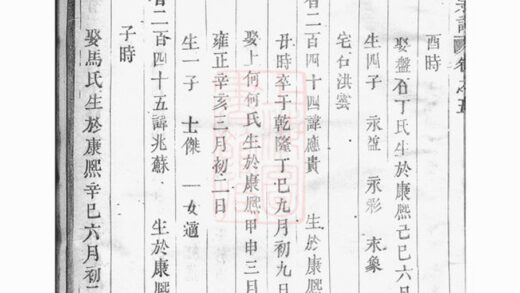 譜 卷之五
酉時
娶盤石丁氏生於康熙己巳六月
生四子 永盈 永彩 永象
宅 洪雲
二百四十四諱應貴 生於康熙
時卒于乾隆丁巳九月初九日
娶上何何氏生於康熙甲申三月
雍正辛亥三月初二日
生一子 士傑 一女適
二百四十五諱兆蘇 生於康熙
子時
娶馬氏生於康熙辛巳六月初